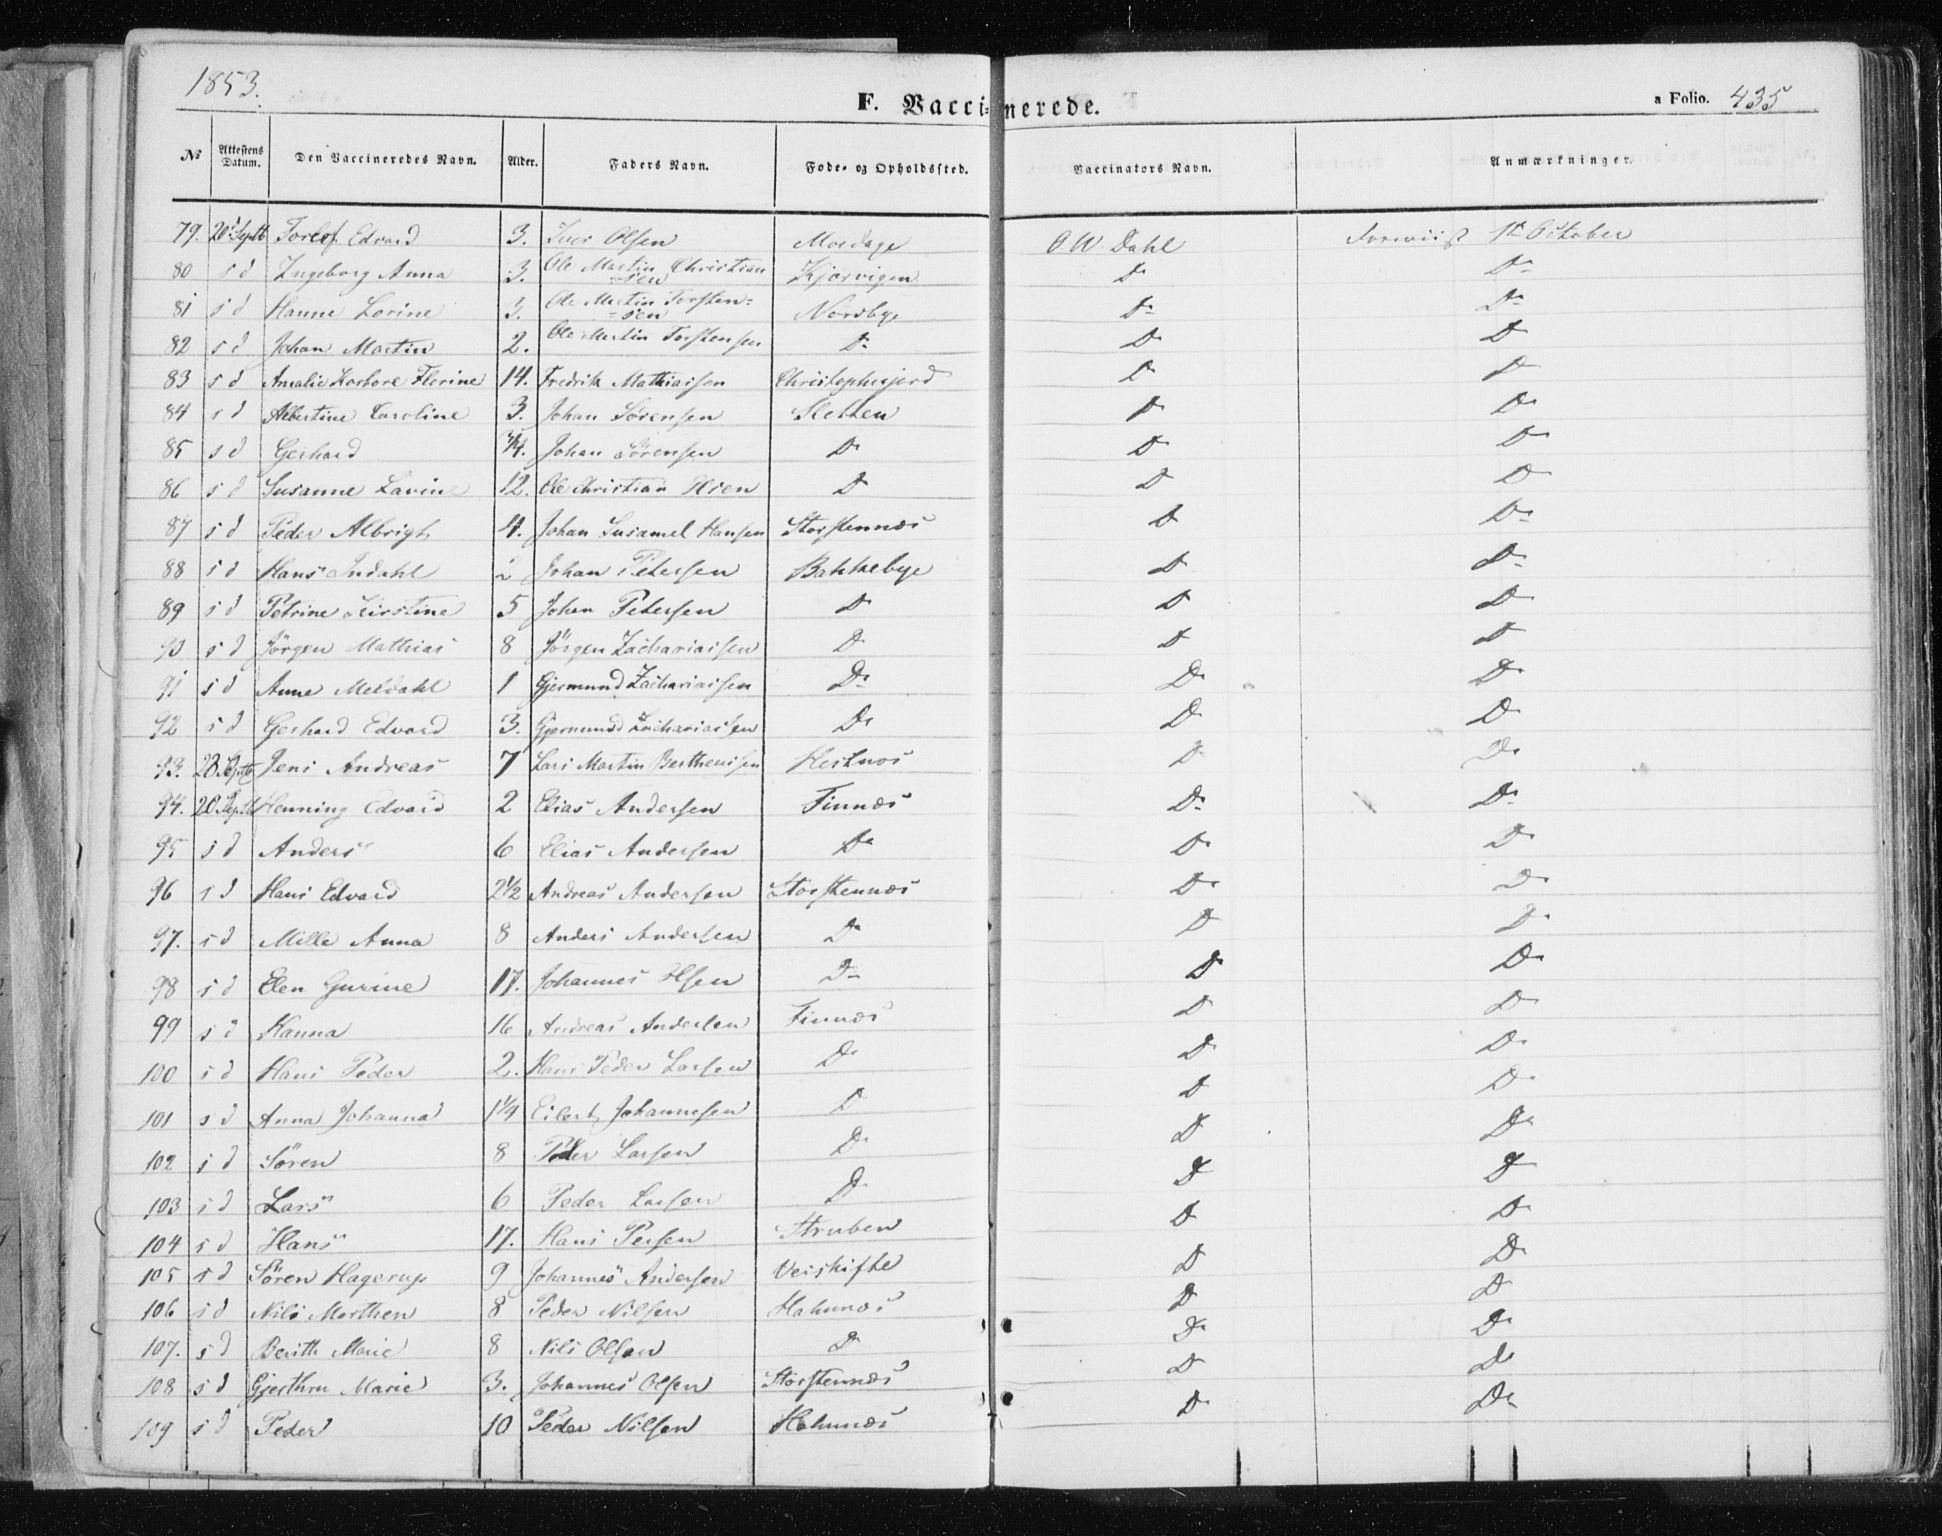 1853.
F. Vaccinerede.
a Folio. 435
№ Attestens Datum. Den Vaccineredes Navn. Alder. Faders Navn. Føde- og Opholdssted. Vaccinators Navn. Anmærkninger.
79. 20 Septb Edvard 3. Iver Olsen O W Dahl 1st October
80 s d Ingeborg Anna 3. Ole Martin Christian Kjærvigen D D
sen
81 s d Hanne Lorine 3. Ole Martin Torsten= Nordbye D D
=sen
82 s d Johan Martin 2. Ole Martin Torstensen D D D
83 s d Amalie Florine 14. Fredrik Mathiassen D D
84 s d Albertine Caroline 3. Johan Sørensen Sletten D D
85 s d Gerhard 3/4. Johan Sørensen D D D
86 s d Susanne Lavine 12. Ole Christian D D D
87 s d Peder Albrigt 4. Johan Hansen Storstennæs D D
88 s d Hans Indahl 2 Johan Petersen Bakkebye D D
89 s d Petrine Kirstine 5 Johan Petersen D D D
90 s d Jörgen Mathias 8 Jörgen Zachariassen D D D
91 s d Anne Meldahl 1 Gjermund Zachariassen D D D
92 s d Gerhard Edvard 3. Gjermund Zachariassen D D D
93. 28 Septb Jens Andreas 7 Lars Martin Bertheussen Hestnæs D D
94. 20 Septb Henning Edvard 2 Elias Andersen Finnæs D D
95 s d Anders 6 Elias Andersen D D D
96 s d Hans Edvard 2 1/2 Andreas Andersen Storstennæs D D
97. s d Mille Anna 8 Anders Andersen D D D
98 s d Elen Gurine 17. Johannes Olsen D D D
99 s d Hanna 16 Andreas Andersen Finnæs D D
100 s d Hans Peder 2. Hans Peder Larsen D D D
101 s d Anna Johanna 1 1/4 Eilert Johannesen D D D
102 s d Sören 8 Peder Larsen D D D
103 s d Lars 6 Peder Larsen D D D
104 s d Hans 17. Hans Persen Struben D D
105 s d Sören Hagerup 9 Johannes Andersen Veiskifte D D
106 s d Nils Morthen 8 Peder Nilsen Hakunæs D D
107. s d Berith Marie 8 Nils Olsen D D D
108 s d Gjerthru Marie 3. Johannes Olsen Storstennæs D D
109 s d Peder 10 Peder Nilsen Hakunæs D D